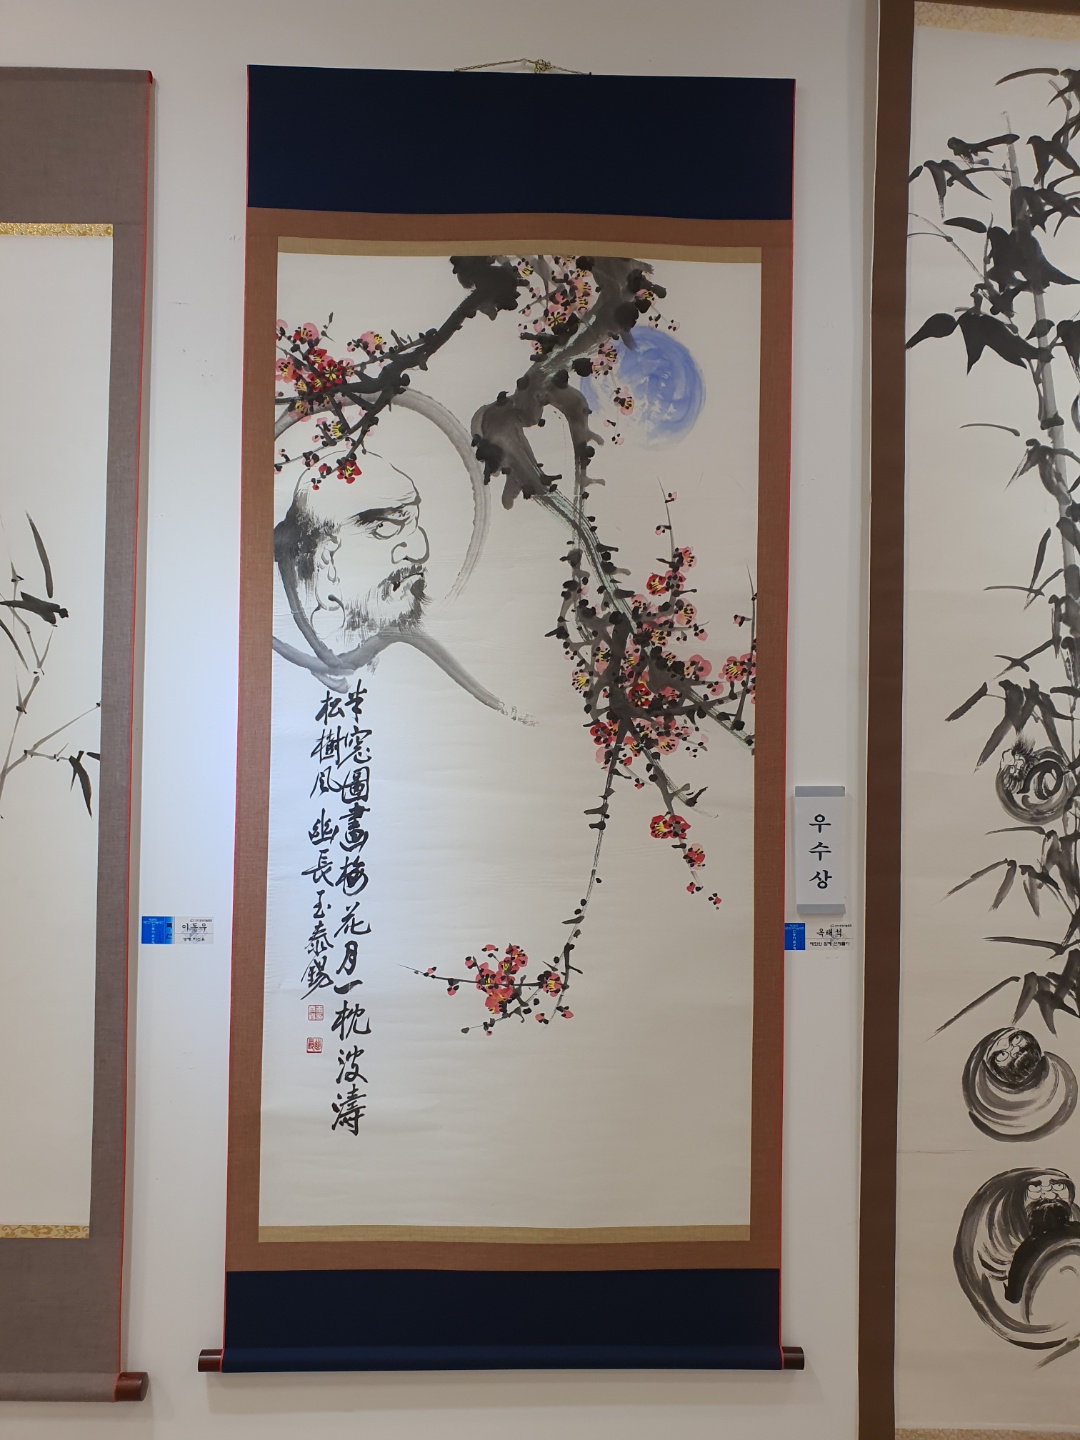 半窓圖畫梅花月一枕波濤
松樹風 幽長玉泰錫
우수상
옥태석
이동우